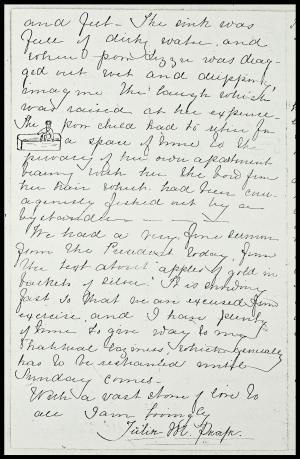 and feet - The sink was
full of dirty water, and
when poor Lizzie was drag-
ged out wet and dripping,
imagine the laugh which
was raised at her expense.
The poor child had to retire for
a space of time to the
privacy of her own apartment
bearing with her the bow from
her hair which had been cour-
ageously fished out by a
bystander
We had a very fine sermon
from the President today, from
the text about "apples of gold in
baskets of silver." It is snowing
fast so that we are excused from
exercise, and I have plenty
of time to give way to my
natural laziness, which generally
has to be restrained until
Sunday comes -
With a vast store of love to
all I am lovingly
Julia M.